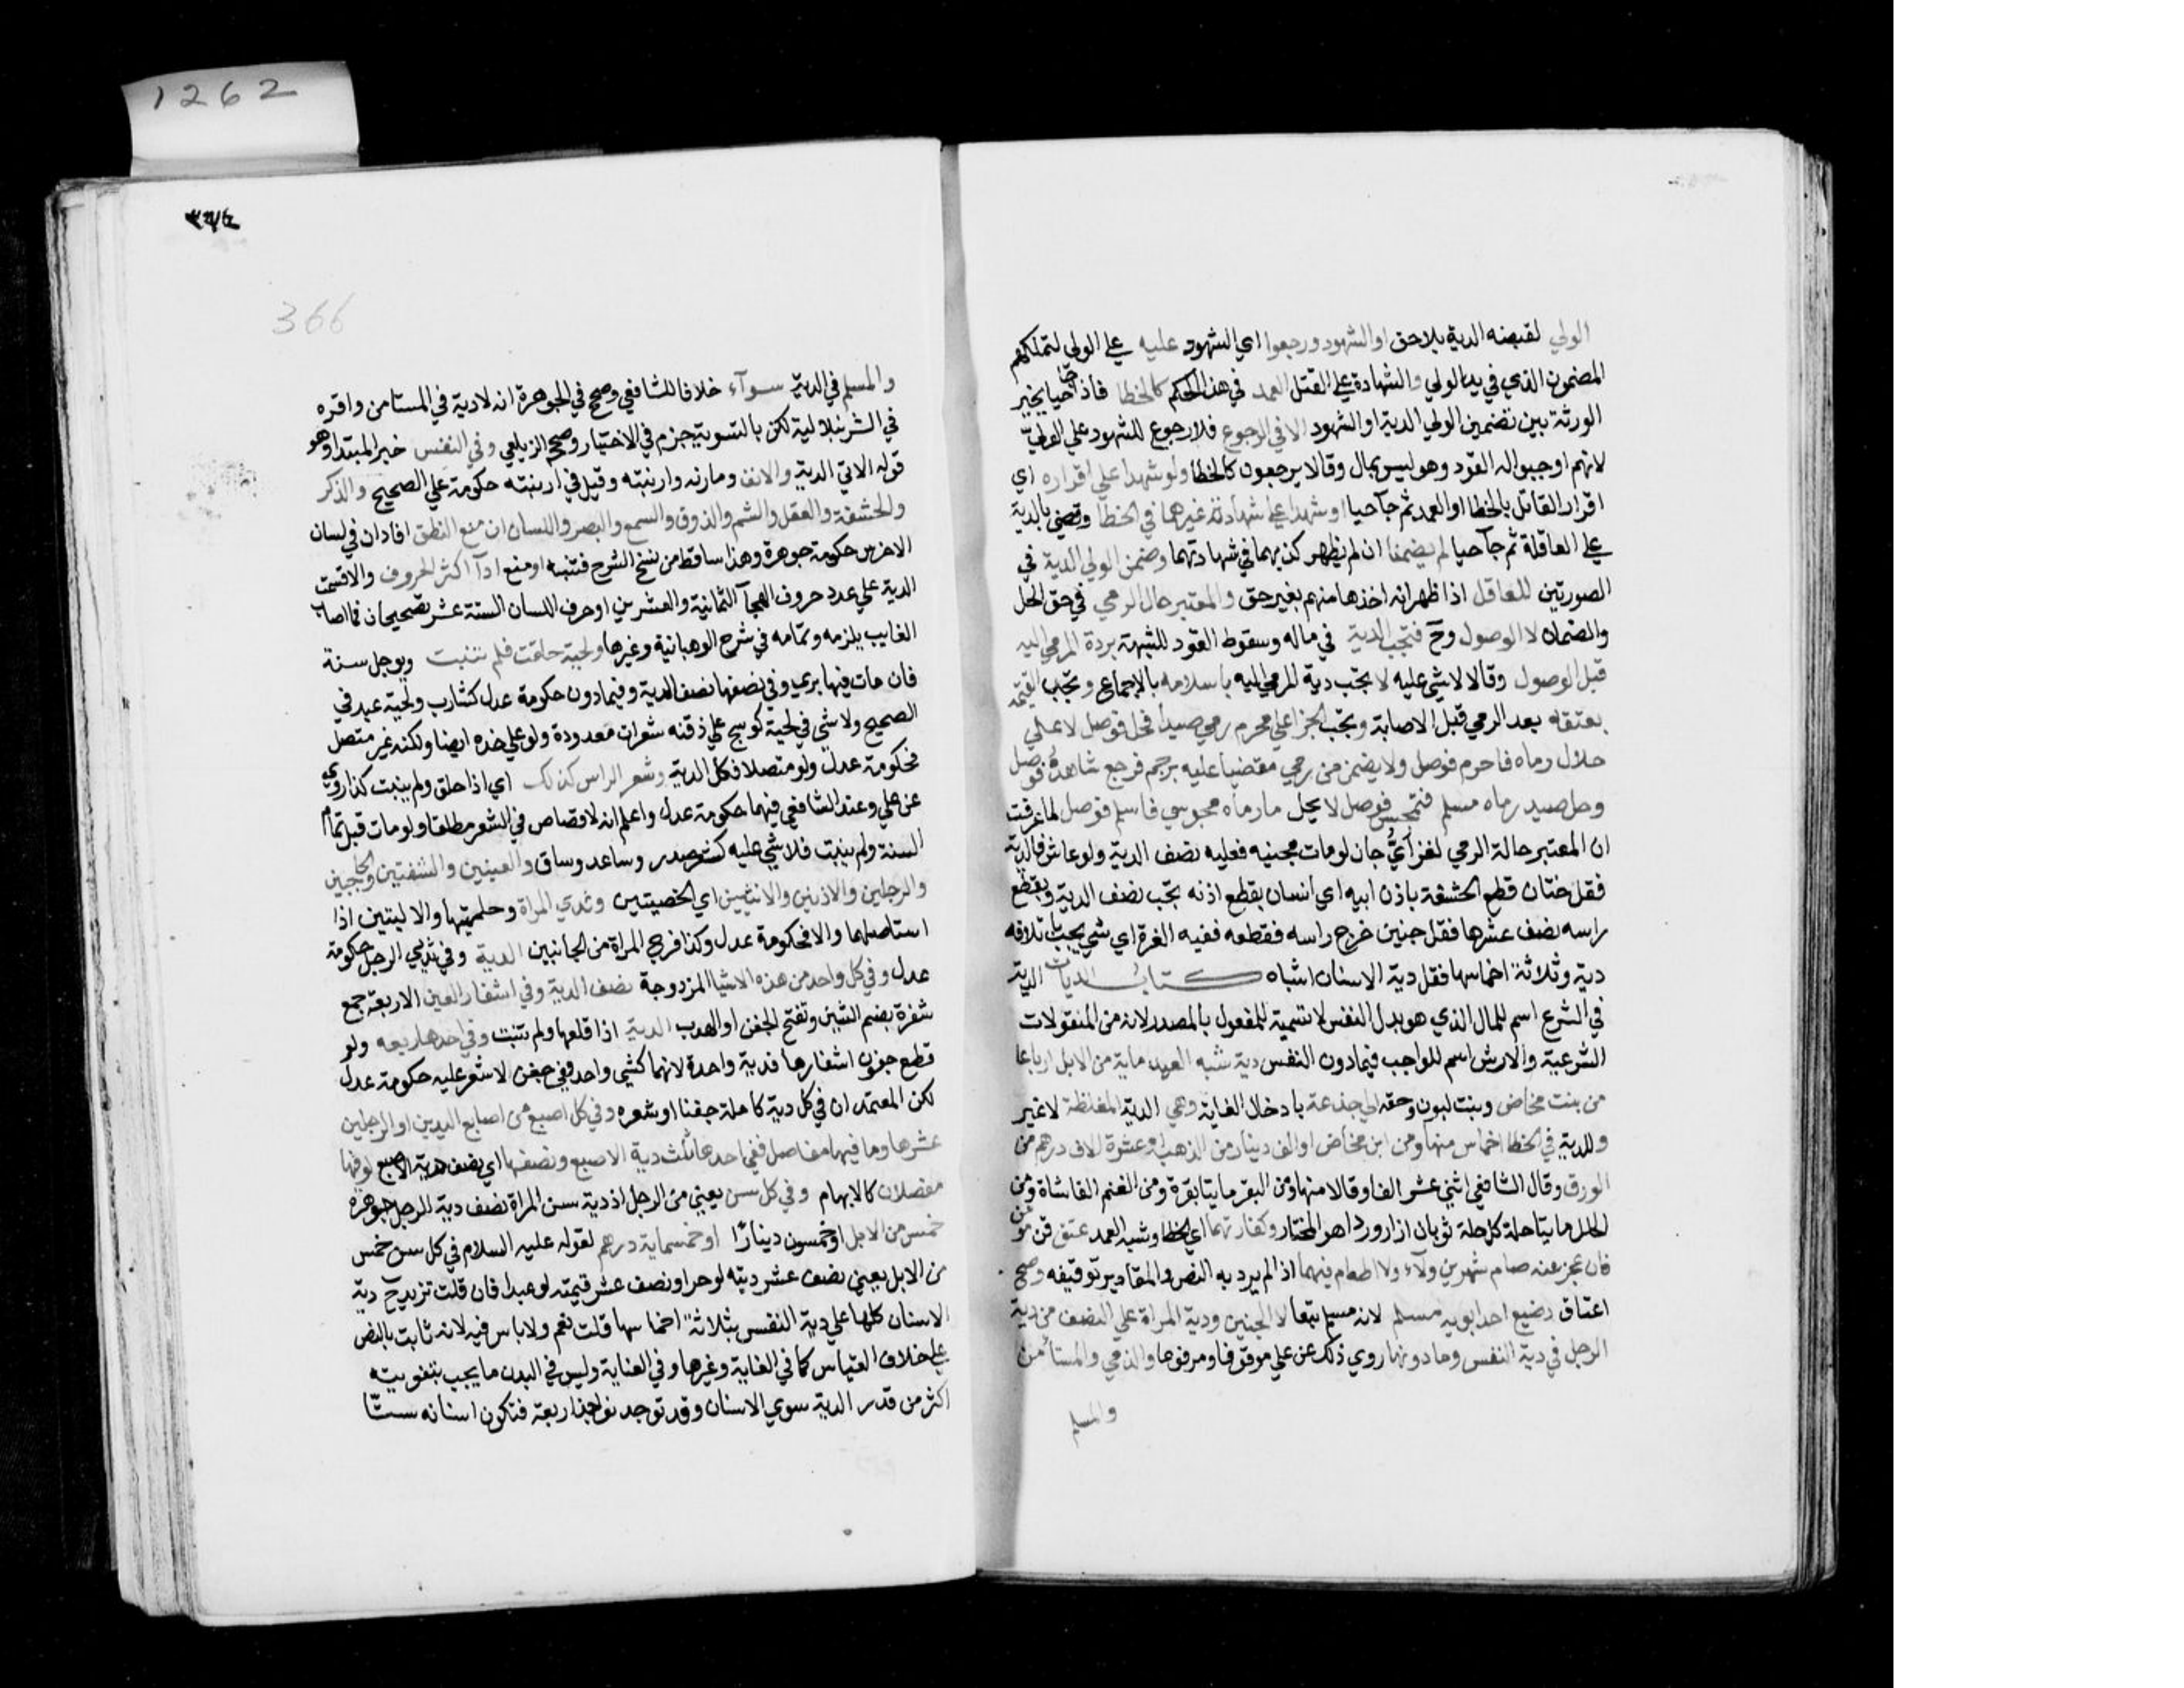 الولي لقبضه الدية بلا حق او الشهود ورجعوا اي الشهود عليه علي الولي لتملكهم
المضمون الذي في يد الولي والشهادة علي القتل العمد في هذا الحكم كالخطا فاذا جا حيا يخير
الورثة بين تضمين الولي الدية او الشهود الا في الرجوع فلا رجوع للشهود علي الولي
لانهم اوجبوا له القود وهو ليس بمال وقالا يرجعون كالخطا ولو شهدا علي اقراره اي
اقرار القاتل بالخطا او العمد ثم جآ حيا او شهدا علي شهادة غيرهما في الخطا وقضي بالدية
علي العاقلة ثم جآ حيا لم يضمنا ان لم يظهر كذبهما في شهادتهما وضمن الولي الدية في
الصورتين للعاقل اذا ظهر انه اخذها منهم بغير حق والمعتبر حال الرمي في حق الحل
والضمان لا الوصول وح فتجب الدية في ماله وسقوط القود للشبهة بردة المرمي اليه
قبل الوصول وقالا لا شي عليه لا تجب دية المرمي اليه باسلامه بالاجماع وتجب القيمة
بعتقه بعد الرمي قبل الاصابة وتجب الجزا علي محرم رمي صيدا فحل فوصل لا علي
حلال رماه فاحرم فوصل ولا يضمن من رمي مقضيا عليه برجم فرجع شاهده فوصل
وحل صيد رماه مسلم فتمجس فوصل لا يحل ما رماه مجوسي فاسلم فوصل لما عرفت
ان المعتبر حالة الرمي لغز اي جان لو مات مجنيه فعليه نصف الدية ولو عاش فالدية
فقل ختان قطع الحشفة باذن ابيه اي انسان بقطع اذنه تجب نصف الدية وبقطع
راسه نصف عشرها فقل جنين خرج راسه فقطعه ففيه الغرة اي شي يجب باتلافه
دية وثلاثة اخماسها فقل دية الاسنان اشباه كتاب الديات الدية
في الشرع اسم للمال الذي هو بدل النفس لا تسمية للمفعول بالمصدر لانه من المنقولات
الشرعية والارش اسم للواجب فيما دون النفس دية شبه العمد ماية من الابل ارباعا
من بنت مخاض وبنت لبون وحقه الي جذعة بادخال الغاية وهي الدية المغلظة لا غير
والدية في الخطا اخماس منها ومن ابن مخاض او الف دينار من الذهب او عشرة الاف درهم من
الورق وقال الشافعي اثني عشر الفا وقالا منها ومن البقر مايتا بقرة ومن الغنم الفا شاة ومن
الحلل مايتا حلة كل حلة ثوبان ازار ورداهو المختار وكفارتهما اي الخطا وشبه العمد عتق قن مومن
فان عجز عنه صام شهرين ولآء ولا اطعام فيهما اذ لم يرد به النص والمقادير توقيفه وصح
اعتاق رضيع احد ابويه مسلم لانه مسلم تبعا لا الجنين ودية المراة علي النصف من دية
الرجل في دية النفس وما دونها روي ذلك عن علي موقوفا ومرفوعا والذمي والمستأمن
والمسلم
1262
٣٦٦
366
والمسلم في الدية سوآء خلافا للشافعي وصحح في الجوهرة انه لا دية في المستامن واقره
في الشرنبلالية لكن بالتسوية جزم في الاختيار وصححه الزيلعي وفي النفس خبر المبتدا وهو
قوله الاتي الدية والانف ومارنه وارنبته وقيل في ارنبته حكومة علي الصحيح والذكر
والحشفة والعقل والشم والذوق والسمع والبصر واللسان ان منع النطق افاد ان في لسان
الاخرس حكومة جوهرة وهذا ساقط من نسخ الشرح فتنبه او منع ادآ اكثر الحروف والا قسمت
الدية علي عدد حروف الهجآ الثمانية والعشرين او حرف اللسان الستة عشر تصحيحان فما اصاب
الغايب يلزمه وتمامه في شرح الوهبانية وغيرها ولحية حلقت فلم تنبت ويوجل سنة
فان مات فيها بري وفي نصفها نصف الدية وفيما دون حكومة عدل كشارب ولحية عبد في
الصحيح ولا شي في لحية كوسج علي ذقنه شعرات معدودة ولو علي خده ايضا ولكنه غير متصل
فحكومة عدل ولو متصلا فكل الدية وشعر الراس كذلك اي اذا حلق ولم ينبت كذا روي
عن علي وعند الشافعي فيهما حكومة عدل واعلم انه لا قصاص في الشعر مطلقا ولو مات قبل تمام
السنة ولم ينبت فلا شي عليه كشعر صدر وساعد وساق والعينين والشفتين والحاجبين
والرجلين والاذنين والانثيين اي الخصيتين وثدي المراة وحلمتيها والاليتين اذا
استاصلهما والا فحكومة عدل وكذا فرج المراة من الجانبين الدية وفي ثديي الرجل حكومة
عدل وفي كل واحد من هذه الاشيا المزدوجة نصف الدية وفي اشفار العين الاربعة جمع
شفرة بضم الشين وتفتح الجفن او الهدب الدية اذا قلعها ولم تنبت وفي احدها ربعه ولو
قطع جفون اشفارها فدية واحدة لانهما كشي واحد وفي جفن لا شعر عليه حكومة عدل
لكن المعتمد ان في كل دية كاملة جفنا او شعره وفي كل اصبع من اصابع اليدين او الرجلين
عشرها وما فيها مفاصل ففي احدها ثلث دية الاصبع ونصفها اي نصف دية الاصبع لو فيها
مفصلان كالابهام وفي كل سن يعني من الرجل اذ دية سن المراة نصف دية الرجل جوهرة
خمس من الابل او خمسون دينارا او خمسماية درهم لقوله عليه السلام في كل سن خمس
من الابل يعني نصف عشر ديته لو حرا ونصف عشر قيمته لو عبدا فان قلت تزيد ح دية
الاسنان كلها علي دية النفس بثلاثة اخماسها قلت نعم ولا باس فيه لانه ثابت بالنص
علي خلاف القياس كما في الغاية وغيرها وفي العناية وليس في البدن ما يجب بتفويته
اكثر من قدر الدية سوي الاسنان وقد توجد نواجذ اربعة فتكون اسنانه ستّا